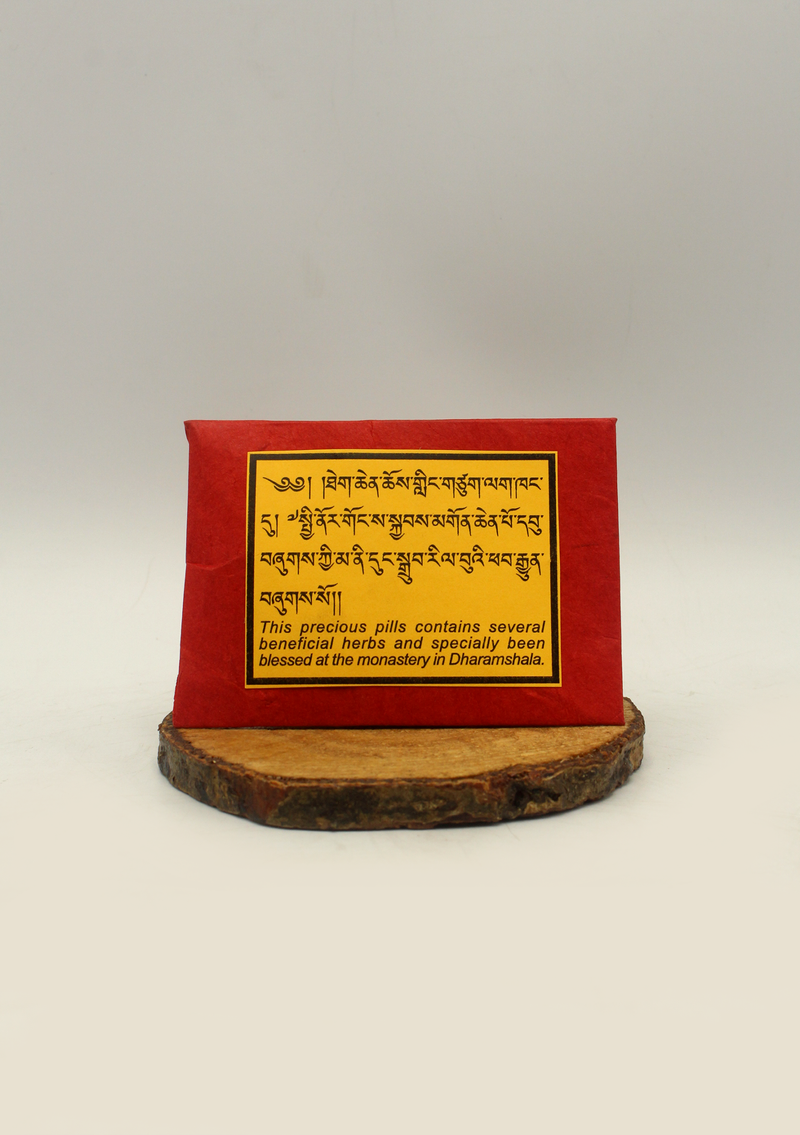 ༄༅། །ཐེག་ཆེན་ཆོས་གླིང་གཙུག་ལག་ཁང་
དུ། ༸སྤྱི་ནོར་གོང་ས་སྐྱབས་མགོན་ཆེན་པོ་དབུ་
བཞུགས་ཀྱི་མ་ནི་དུང་སྒྲུབ་རིལ་བུའི་ཕབ་རྒྱུན་
བཞུགས་སོ།།
This precious pills contains several
beneficial herbs and specially been
blessed at the monastery in Dharamshala.